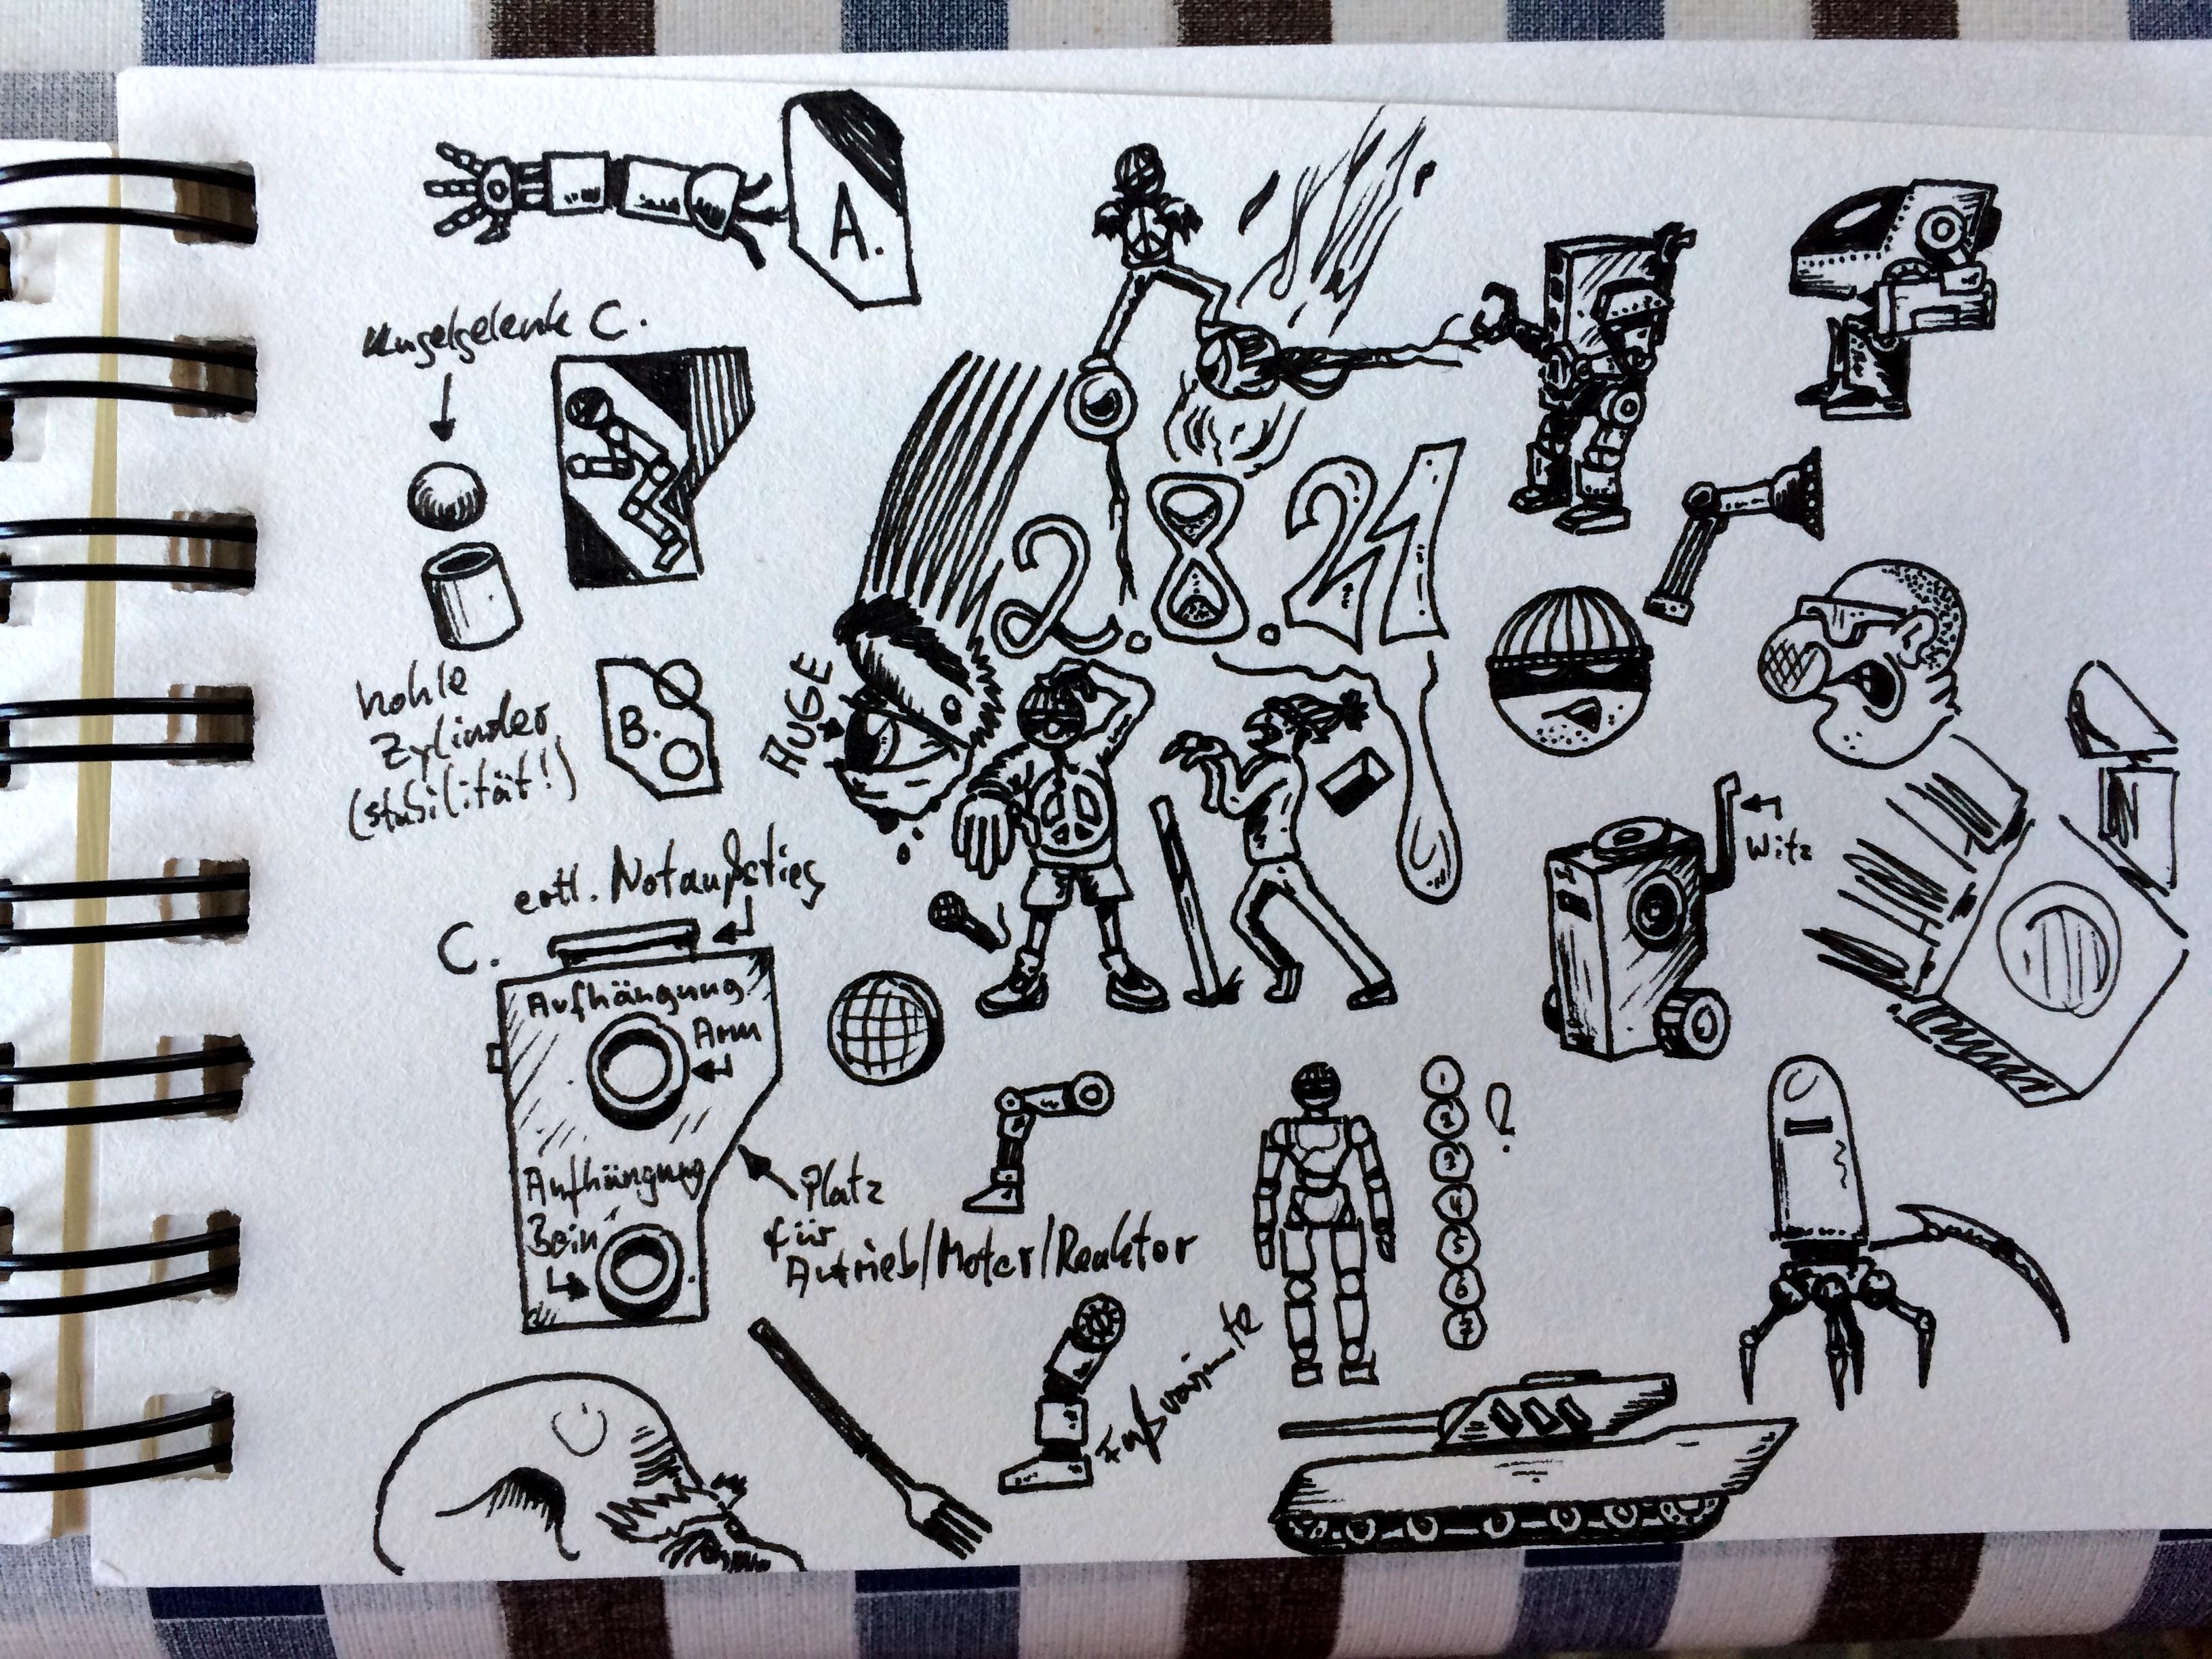 A.
Kugelgelenk C.
2.8.21
hohle
Zylinder
(stabilität!)
B.
AUGE
Witz
evtl. Notausstieg
C.
Aufhängung
Arm
Aufhängung
Bein
Platz
für
Antrieb/Motor/Reaktor
1
2
?
3
4
5
6
7